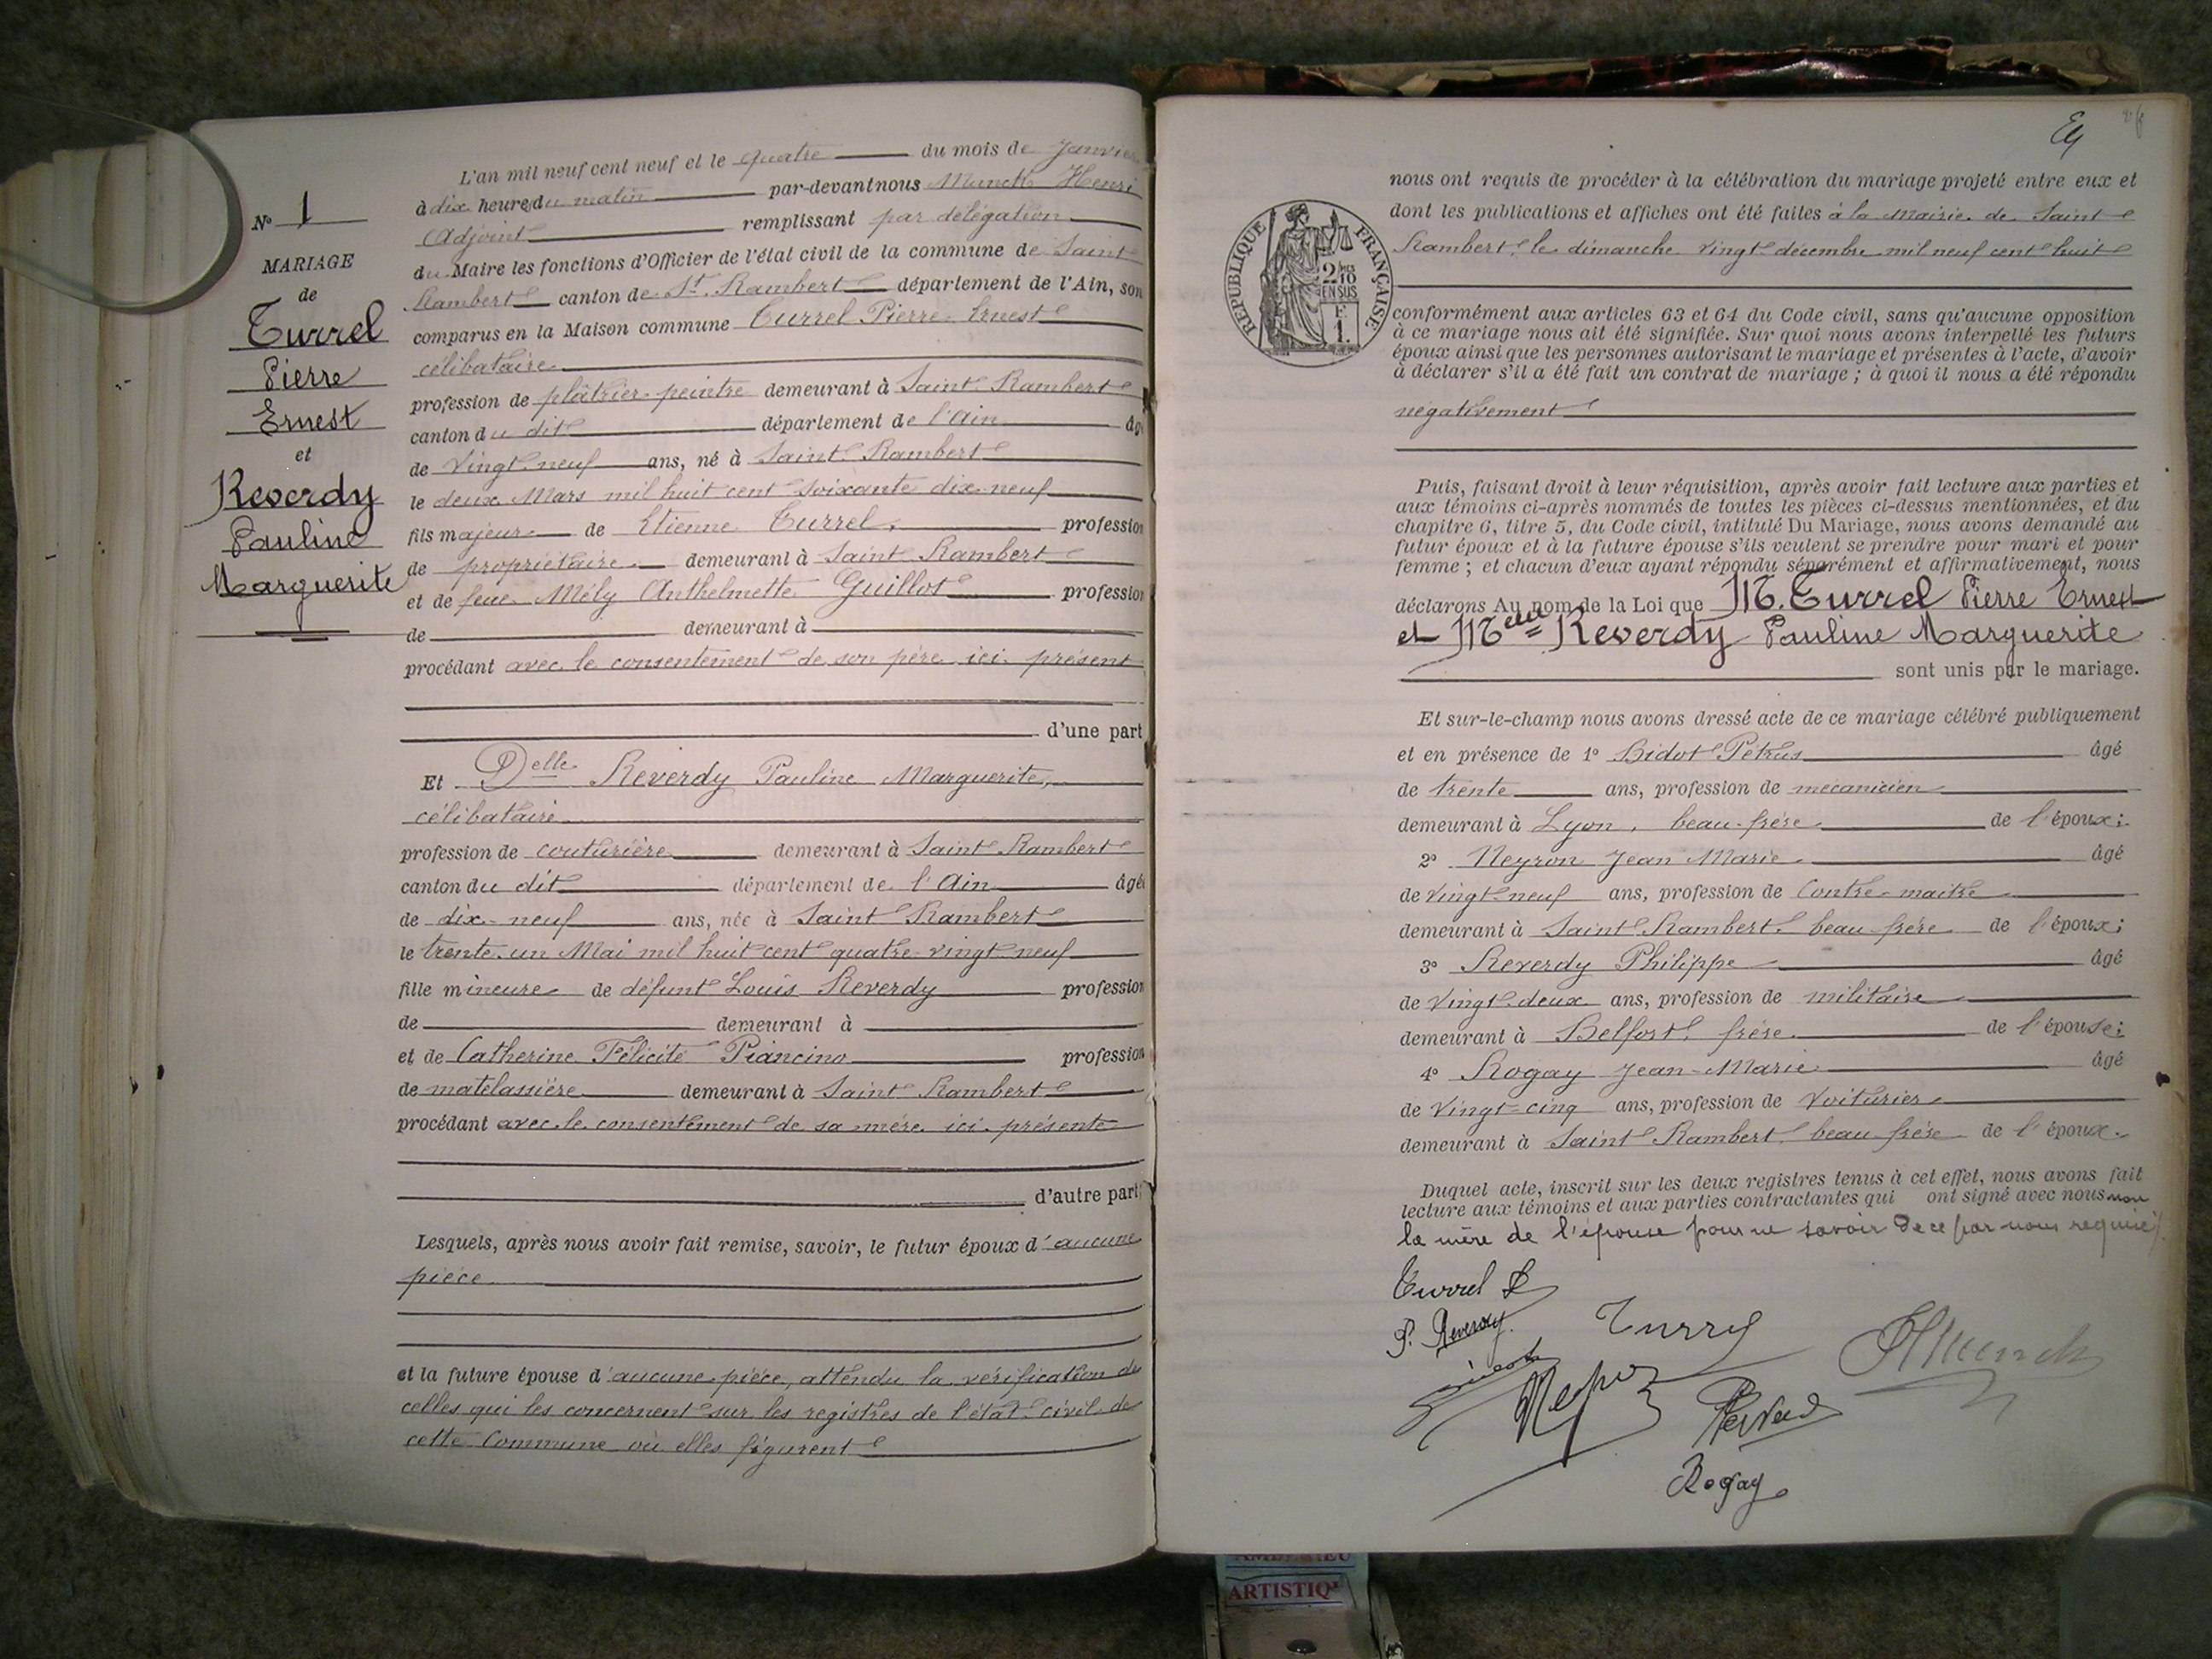 N° 1
MARIAGE
de
Turrel
Pierre
Ernest
et
Reverdy
Pauline
Marguerite
L'an mil neuf cent neuf et le quatre du mois de Janvier
à dix heures du matin par-devant nous Munck Henri
Adjoint remplissant par délégation
du Maire les fonctions d'Officier de l'état civil de la commune de Saint
Rambert canton de St. Rambert département de l'Ain, son
comparus en la Maison commune Turrel Pierre Ernest
célibataire
profession de plâtrier-peintre demeurant à Saint Rambert
canton du dit département de l'Ain âgé
de vingt-neuf ans, né à Saint Rambert
le deux Mars mil huit cent soixante dix-neuf
fils majeur de Etienne Turrel, profession
de propriétaire demeurant à Saint Rambert
et de feue Mély Anthelmette Guillot profession
de demeurant à
procédant avec le consentement de son père ici présent
d'une part
Et Delle Reverdy Pauline Marguerite,
célibataire
profession de couturière demeurant à Saint Rambert
canton du dit département de l'Ain âgé
de dix-neuf ans, née à Saint Rambert
le trente-un Mai mil huit cent quatre-vingt neuf
fille mineure de défunt Louis Reverdy profession
de demeurant à
et de Catherine Félicité Piancino profession
de matelassière demeurant à Saint Rambert
procédant avec le consentement de sa mère ici présente
d'autre part
Lesquels, après nous avoir fait remise, savoir, le futur époux d'aucune
pièce
et la future épouse d'aucune pièce, attendu la vérification de
celles qui les concernent sur les registres de l'état civil de
cette Commune où elles figurent
RÉPUBLIQUE FRANÇAISE
2/10
EN SUS
F.
1.
nous ont requis de procéder à la célébration du mariage projeté entre eux et
dont les publications et affiches ont été faites à la Mairie de Saint
Rambert, le dimanche vingt décembre mil neuf cent huit
conformément aux articles 63 et 64 du Code civil, sans qu'aucune opposition
à ce mariage nous ait été signifiée. Sur quoi nous avons interpellé les futurs
époux ainsi que les personnes autorisant le mariage et présentes à l'acte, d'avoir
à déclarer s'il a été fait un contrat de mariage ; à quoi il nous a été répondu
négativement
Puis, faisant droit à leur réquisition, après avoir fait lecture aux parties et
aux témoins ci-après nommés de toutes les pièces ci-dessus mentionnées, et du
chapitre 6, titre 5, du Code civil, intitulé Du Mariage, nous avons demandé au
futur époux et à la future épouse s'ils veulent se prendre pour mari et pour
femme ; et chacun d'eux ayant répondu séparément et affirmativement, nous
déclarons Au nom de la Loi que M. Turrel Pierre Ernest
et Melle Reverdy Pauline Marguerite
sont unis par le mariage.
Et sur-le-champ nous avons dressé acte de ce mariage célébré publiquement
et en présence de 1° Bidot Pétrus âgé
de trente ans, profession de mécanicien
demeurant à Lyon, beau-frère de l'époux;
2° Neyron Jean Marie âgé
de vingt-neuf ans, profession de Contre-maitre
demeurant à Saint Rambert, beau frère de l'époux;
3° Reverdy Philippe âgé
de vingt-deux ans, profession de militaire
demeurant à Belfort, frère de l'épouse;
4° Rogay Jean-Marie âgé
de vingt-cinq ans, profession de Voiturier
demeurant à Saint Rambert, beau frère de l'époux.
Duquel acte, inscrit sur les deux registres tenus à cet effet, nous avons fait
lecture aux témoins et aux parties contractantes qui ont signé avec nous non
la mère de l'épouse pour ne savoir de ce par nous requise
Turrel
P. Reverdy
HMunck
Rogay
ARTISTIQ